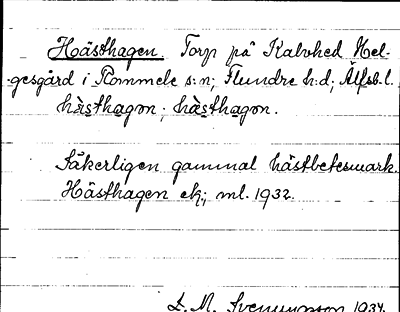 Hästhagen. Torp på Kalvhed Hel-
gesgård i Rommele s:n; Flundre h:d; Älfsb. l.
hàs̱tha̱gən; hàs̱tha̱gon.
Säkerligen gammal hästbetesmark.
Hästhagen ek; ml. 1932.
D. M. Svenungsson 1934.